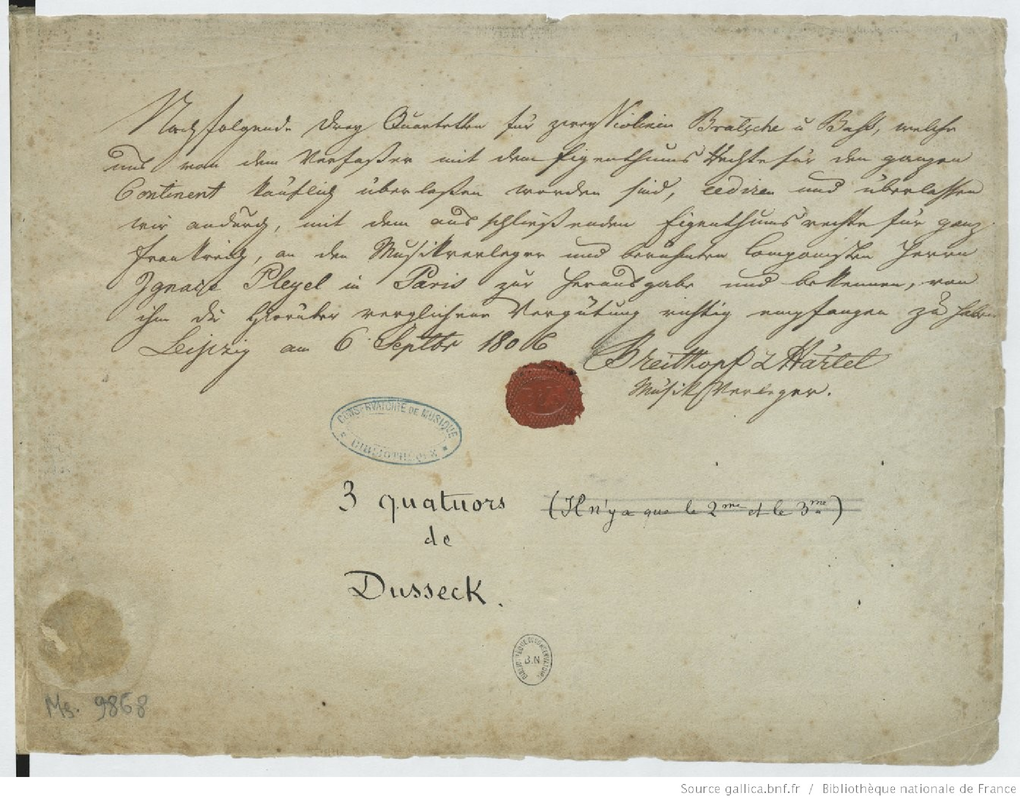 Nachfolgende drey Quartetten für zwey Violinen Bratsche u Baß, welche
uns von dem Verfaßer mit dem Eigenthums Rechte für den ganzen
Continent käuflich überlaßen worden sind, cediren und überlassen
wir andurch, mit dem ausschließenden Eigenthumsrechte für ganz
Frankreich, an den Musikverleger und berühmten Componisten Herrn
Ignace Pleyel in Paris zur Herausgabe und bekennen, von
ihm die hierüber verglichene Vergütung richtig empfangen zu haben
Leipzig am 6 Septbr 1806 Breitkopf & Härtel
Musik Verleger.
CONSERVATOIRE DE MUSIQUE
BIBLIOTHÈQUE
3 quatuors (Il n'y a que le 2me et le 3me)
de
Dusseck.
B.N.
Ms. 9868
Source gallica.bnf.fr / Bibliothèque nationale de France